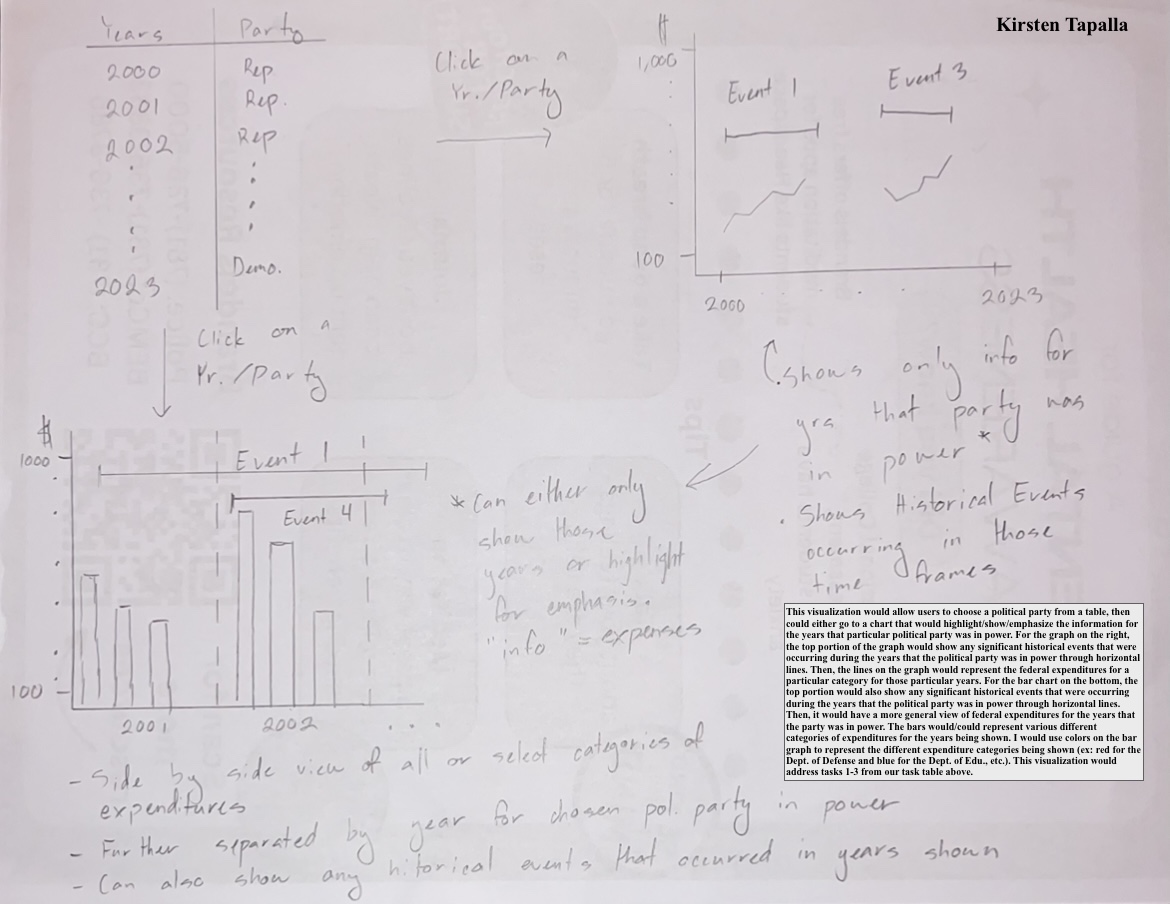 Kirsten Tapalla
Years Party
2000 Rep
2001 Rep.
2002 Rep
2023 Demo.
Click on a
Yr./Party
$
1,000
100
Event 1
Event 3
2000 2023
Click on a
Yr./Party
$
1000
100
Event 1
Event 4
2001 2002 . . .
shows only info for
yrs that party was
in power *
. Shows Historical Events
occurring in those
time frames
* Can either only
show those
years or highlight
for emphasis.
"info" = expenses
This visualization would allow users to choose a political party from a table, then
could either go to a chart that would highlight/show/emphasize the information for
the years that particular political party was in power. For the graph on the right,
the top portion of the graph would show any significant historical events that were
occurring during the years that the political party was in power through horizontal
lines. Then, the lines on the graph would represent the federal expenditures for a
particular category for those particular years. For the bar chart on the bottom, the
top portion would also show any significant historical events that were occurring
during the years that the political party was in power through horizontal lines.
Then, it would have a more general view of federal expenditures for the years that
the party was in power. The bars would/could represent various different
categories of expenditures for the years being shown. I would use colors on the bar
graph to represent the different expenditure categories being shown (ex: red for the
Dept. of Defense and blue for the Dept. of Edu., etc.). This visualization would
address tasks 1-3 from our task table above.
- Side by side view of all or select categories of
expenditures
- Further separated by year for chosen pol. party in power
- Can also show any hitorical events that occurred in years shown